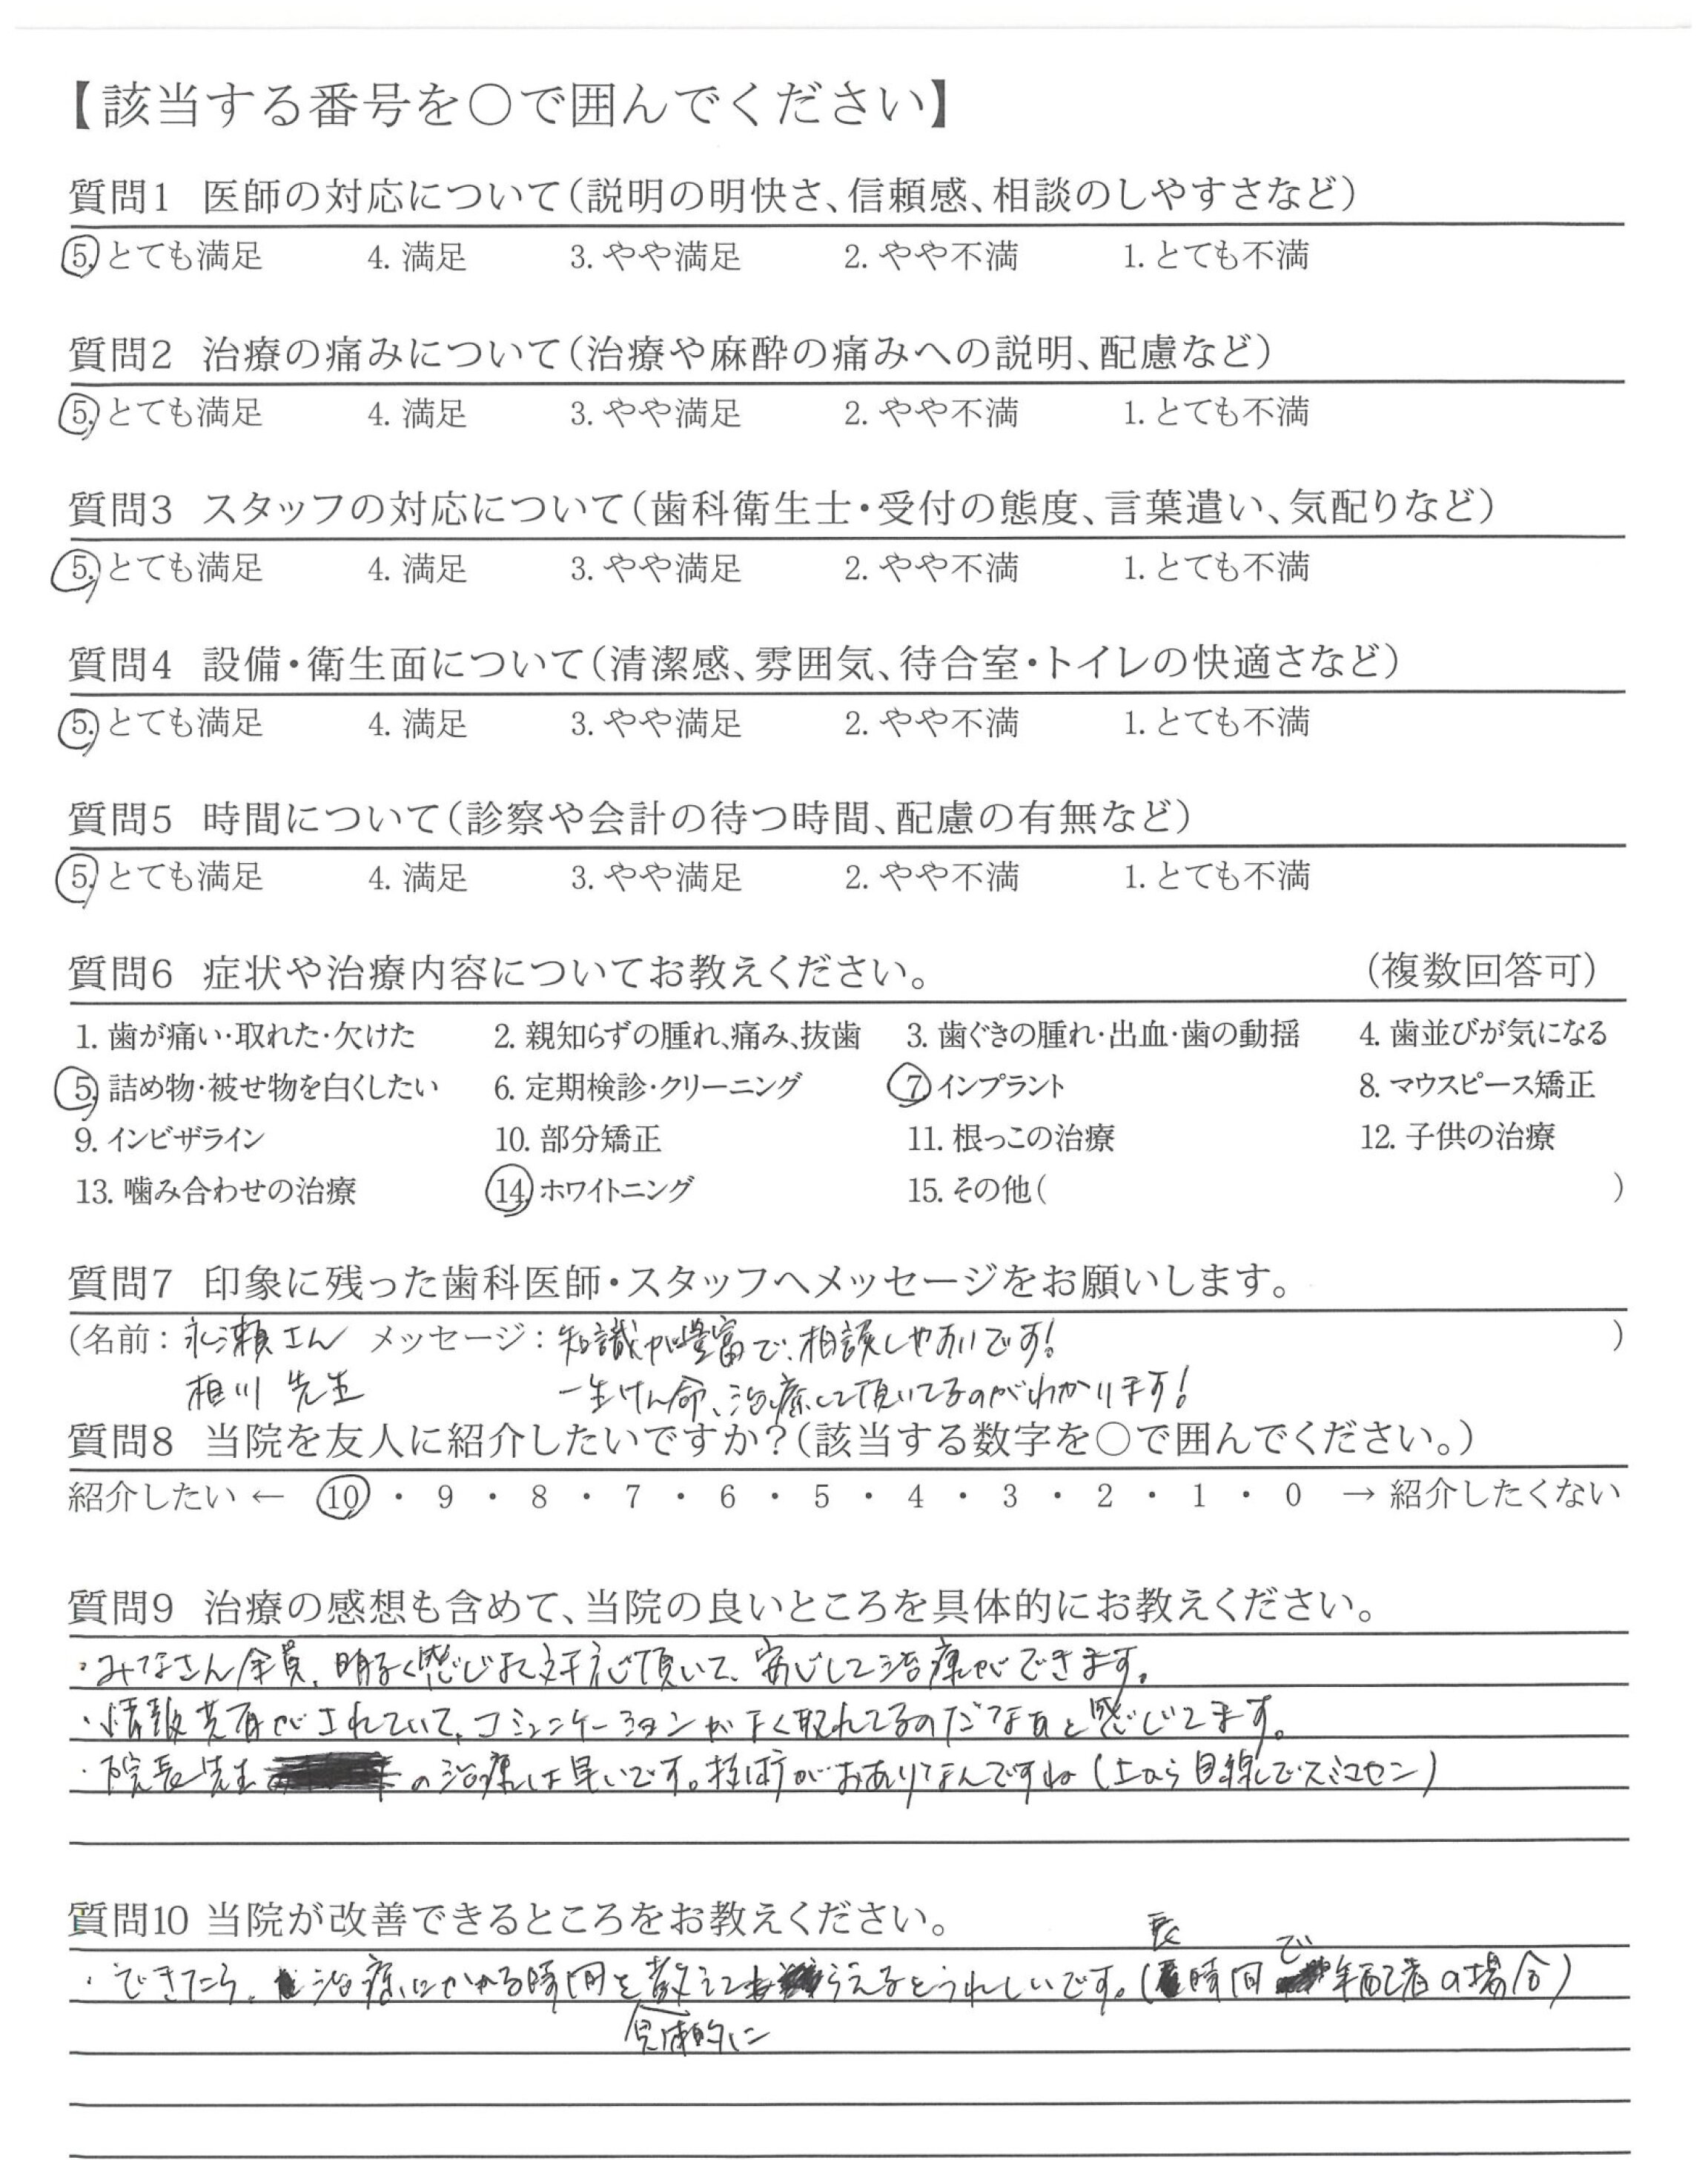 【該当する番号を○で囲んでください】
質問1 医師の対応について(説明の明快さ、信頼感、相談のしやすさなど)
5. とても満足 4. 満足 3. やや満足 2. やや不満 1. とても不満
質問2 治療の痛みについて(治療や麻酔の痛みへの説明、配慮など)
5. とても満足 4. 満足 3. やや満足 2. やや不満 1. とても不満
質問3 スタッフの対応について(歯科衛生士・受付の態度、言葉遣い、気配りなど)
5. とても満足 4. 満足 3. やや満足 2. やや不満 1. とても不満
質問4 設備・衛生面について(清潔感、雰囲気、待合室・トイレの快適さなど)
5. とても満足 4. 満足 3. やや満足 2. やや不満 1. とても不満
質問5 時間について(診察や会計の待つ時間、配慮の有無など)
5. とても満足 4. 満足 3. やや満足 2. やや不満 1. とても不満
質問6 症状や治療内容についてお教えください。 (複数回答可)
1. 歯が痛い・取れた・欠けた 2. 親知らずの腫れ、痛み、抜歯 3. 歯ぐきの腫れ・出血・歯の動揺 4. 歯並びが気になる
5. 詰め物・被せ物を白くしたい 6. 定期検診・クリーニング 7. インプラント 8. マウスピース矯正
9. インビザライン 10. 部分矯正 11. 根っこの治療 12. 子供の治療
13. 噛み合わせの治療 14. ホワイトニング 15. その他( )
質問7 印象に残った歯科医師・スタッフへメッセージをお願いします。
(名前: 永瀬さん メッセージ: 知識が豊富で、相談しやすいです! )
相川 先生 一生けん命、治療して頂いてるのがわかります!
質問8 当院を友人に紹介したいですか?(該当する数字を○で囲んでください。)
紹介したい ← 10 ・ 9 ・ 8 ・ 7 ・ 6 ・ 5 ・ 4 ・ 3 ・ 2 ・ 1 ・ 0 → 紹介したくない
質問9 治療の感想も含めて、当院の良いところを具体的にお教えください。
・みなさん全員、明るく感じよく対応頂いて、安心して治療ができます。
・情報共有がされていて、コミュニケーションがよく取れてるのだなぁと感じてます。
・院長先生の治療は早いです。技術がおありなんですね(上から目線でスミマセン)
質問10 当院が改善できるところをお教えください。
・できたら、治療にかかる時間を具体的に教えてもらえるとうれしいです。(長時間で年配者の場合)